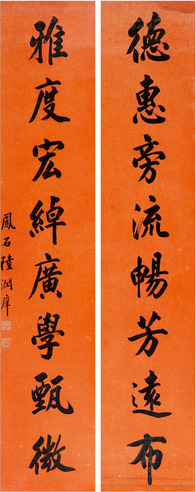 德惠旁流暢芳遠布
雅度宏綽廣學甄微
鳳石陸潤庠